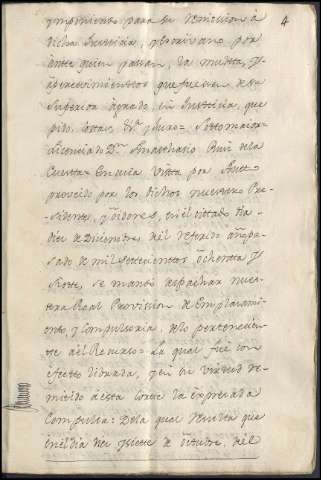 4
ympimiento para su remission à
dicha Justicia, y Escrivano por
ante quien passan, la multa, y
apercevimientos que fuesen de su
superior agrado en Justicia, que
pido, costas, &ª y Juro= Sotomaior=
Licenciado Dn. Anasthasio Ruiz de la
Cuesta= En cuia vista por Autto
proveido por los dichos nuestro Pre-
sidente, y oidores, en el citado dia
diez de Diciembre del referido año pa-
sado de mil settecientos ochenta y
siete, se mandò despachar nues-
tra Real Provission de Emplazami-
ento, y Compulsoria, de lo pertenecien-
te à el Recurso= La qual fue con
efecto librada, y en su virtud re-
mitido à esta Corte la expresada
Compulsa: De la qual resulta que
en el dia diez y siete de octubre, del